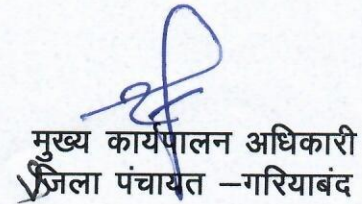 मुख्य कार्यपालन अधिकारी
जिला पंचायत –गरियाबंद